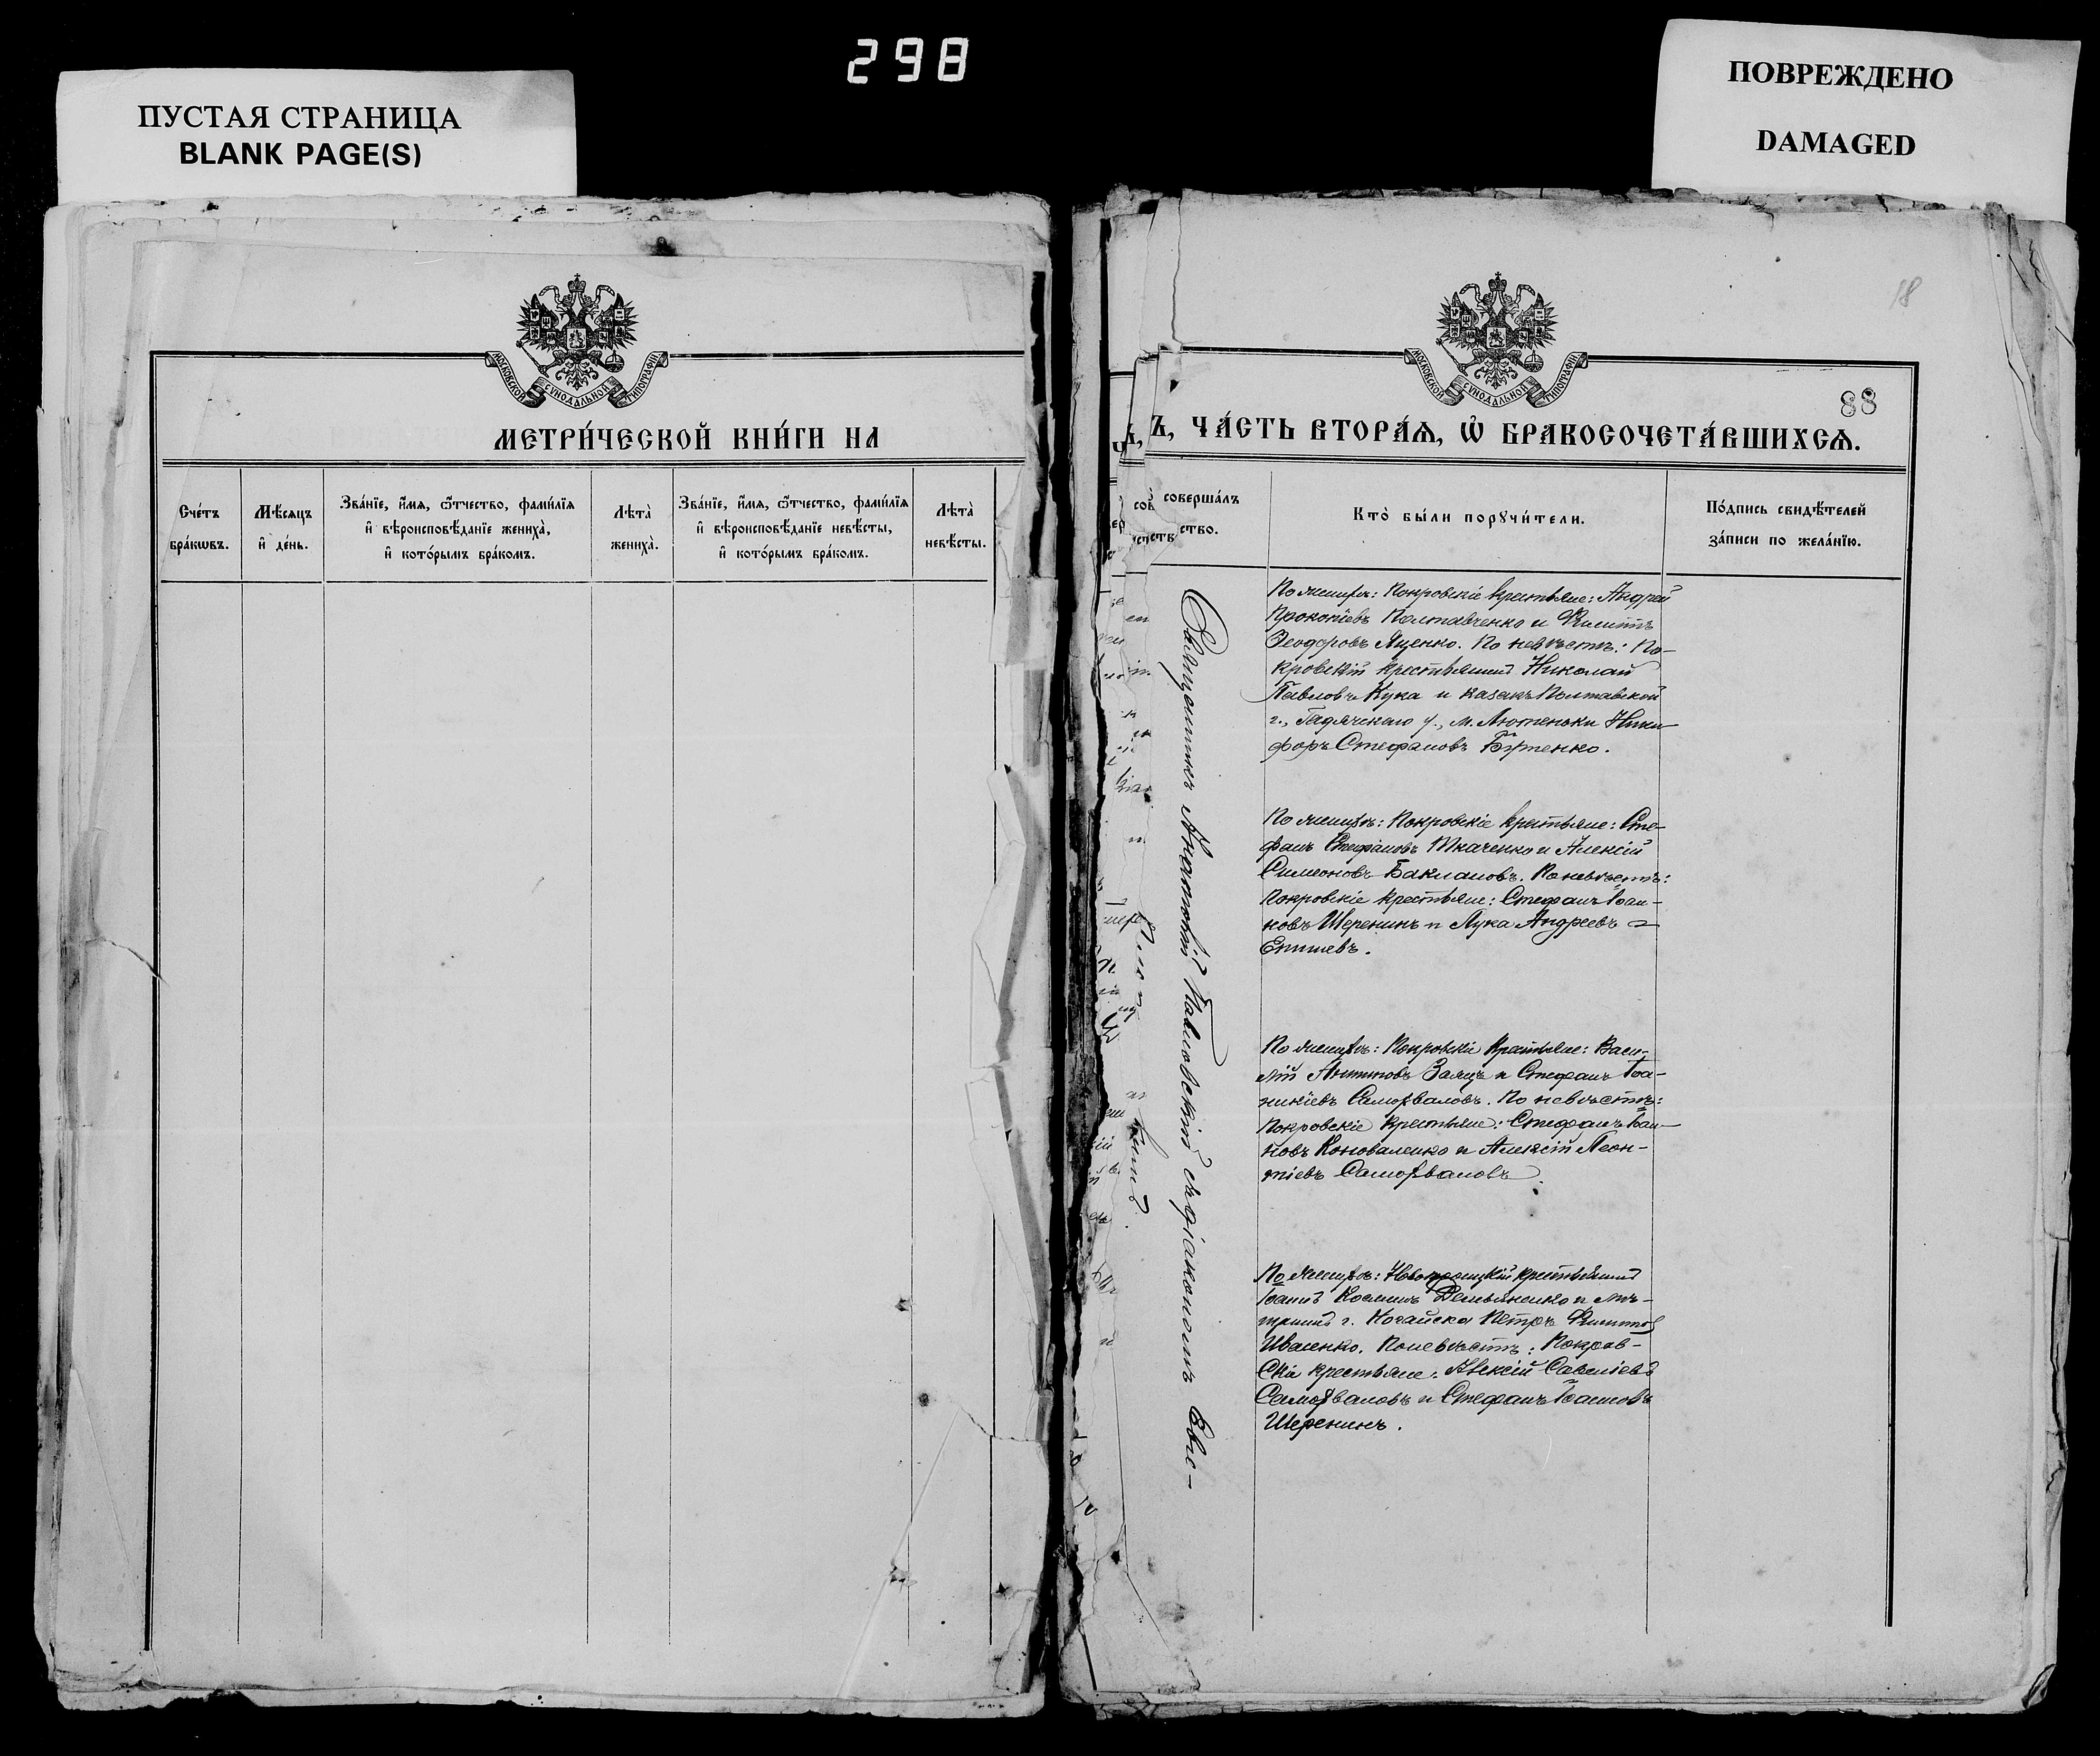 298
ПУСТАЯ СТРАНИЦА
BLANK PAGE(S)
ПОВРЕЖДЕНО
DAMAGED
МОСКОВСКОЙ СѴНОДАЛЬНОЙ ТИПОГРАФІИ
МЕТРИ́ЧЕСКОЙ КНИ́ГИ НА
Сче́тъ бра́кѡвъ.
Мѣ́сяцъ и҆ де́нь.
Зва́нїе, и҆́мѧ, ѻ҆́тчество, фами́лїѧ
и҆ вѣроисповѣ́данїе жениха̀,
и҆ кото́рымъ бра́комъ.
Лѣта̀ жениха̀.
Зва́нїе, и҆́мѧ, ѻ҆́тчество, фами́лїѧ
и҆ вѣроисповѣ́данїе невѣ́сты,
и҆ кото́рымъ бра́комъ.
Лѣта̀ невѣ́сты.
18
МОСКОВСКОЙ СѴНОДАЛЬНОЙ ТИПОГРАФІИ
88
Ъ, ЧА́СТЬ ВТОРА́Ѧ, Ѽ БРАКОСОЧЕТА́ВШИХСѦ.
соверша́лъ
ство.
Кто̀ бы́ли порꙋчи́тели.
По́дпись свидѣ́телей
за́писи по жела́нїю.
Священникъ Анатолій Павловскій съ діакономъ
По жениху: Покровскіе крестьяне: Андрей
Прокопіевъ Полтавченко и Филиппъ
Ѳеодоровъ Яценко. По невѣстѣ: По-
кровскій крестьянинъ Николай
Павловъ Кука и казакъ Полтавской
г., Гадячскаго у., м. Лютеньки Ники-
форъ Стефановъ
По жениху: Покровскіе крестьяне: Сте-
фанъ Стефановъ Ткаченко и Алексій
Симеоновъ Баклановъ. По невѣстѣ:
Покровскіе крестьяне: Стефанъ Іоан-
новъ Шеренинъ и Лука Андреевъ
Епишевъ.
По жениху: Покровскіе крестьяне: Васи-
лій Антиповъ Заяцъ и Стефанъ Іоа-
никіевъ Самохваловъ. По невѣстѣ:
Покровскіе крестьяне: Стефанъ Іоан-
новъ Коноваленко и Алексій Леон-
тіевъ Самохваловъ.
По жениху: Новотроицкій крестьянинъ
Іоаннъ Косминъ Демьяненко и мѣ-
щанинъ г. Ногайска Петръ Филипповъ
Иваненко. По невѣстѣ: Покров-
скіе крестьяне: Алексій Савеліевъ
Самохваловъ и Стефанъ Іоанновъ
Шеренинъ.